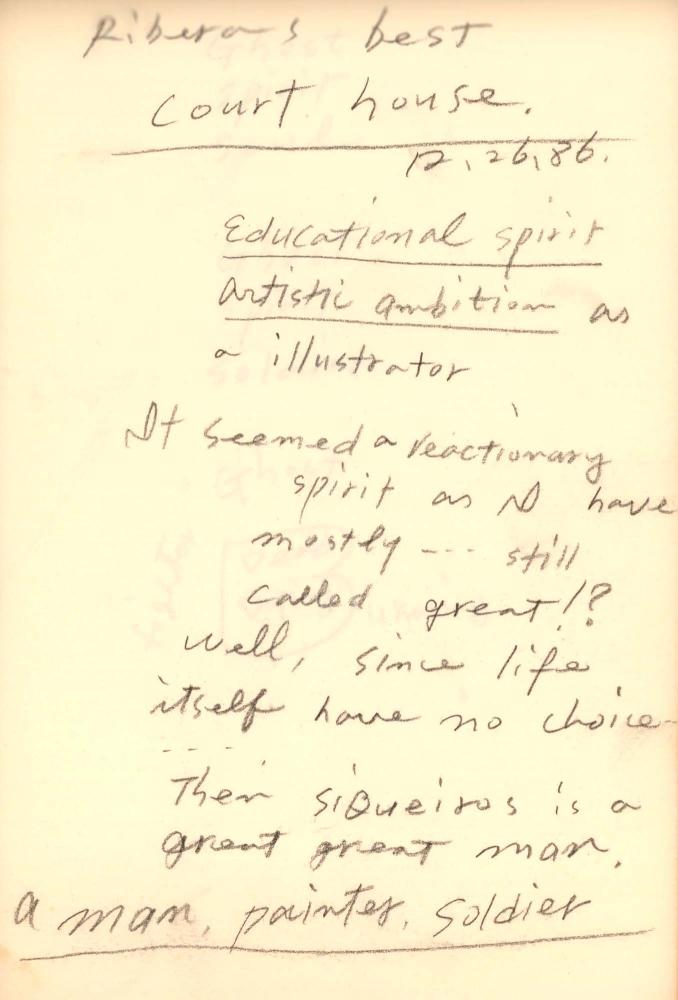 Ribera's best
court house.
12, 26, 86.
Educational spirit
artistic ambition as
a illustrator
It seemed a reactionary
spirit as I have
mostly --- still
called great!?
well, since life
itself have no choice-
----
Then SiQueiros is a
great great man.
a man, painter, soldier